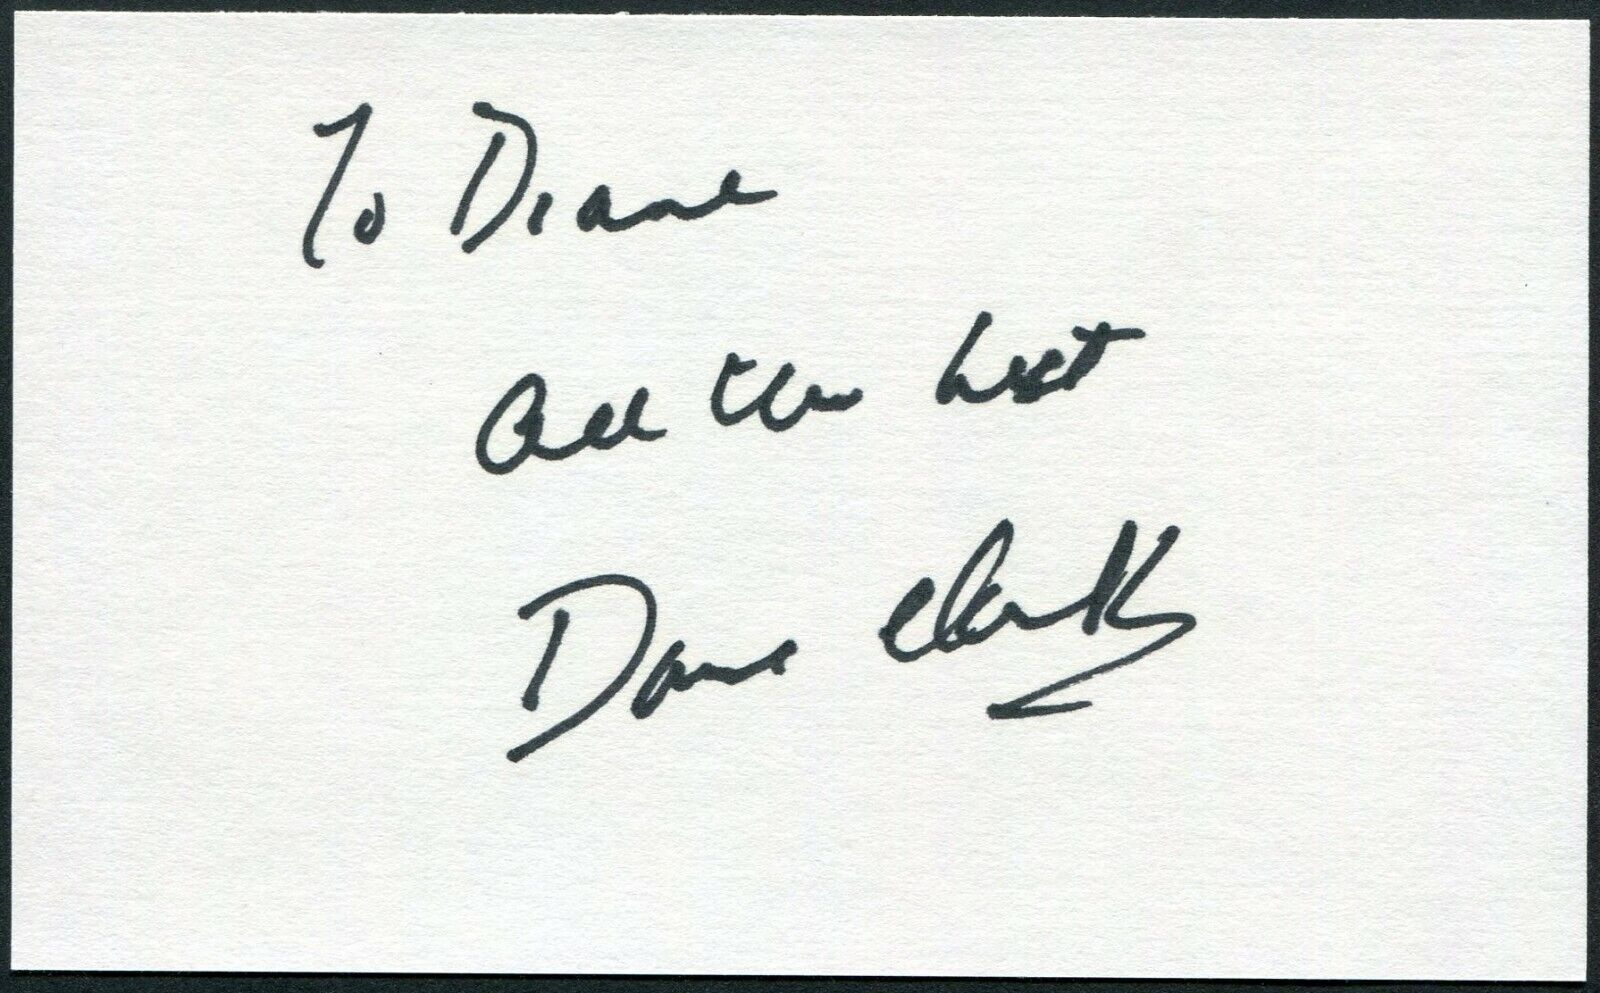 To Diane
All the best
Dane Clark